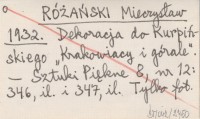 RÓŻAŃSKI Mieczysław
1932. Dekoracja do Kurpiń-
skiego „Krakowiacy i górale".
— Sztuki Piękne 8, nr 12:
346, il. i 347, il. Tylko fot.